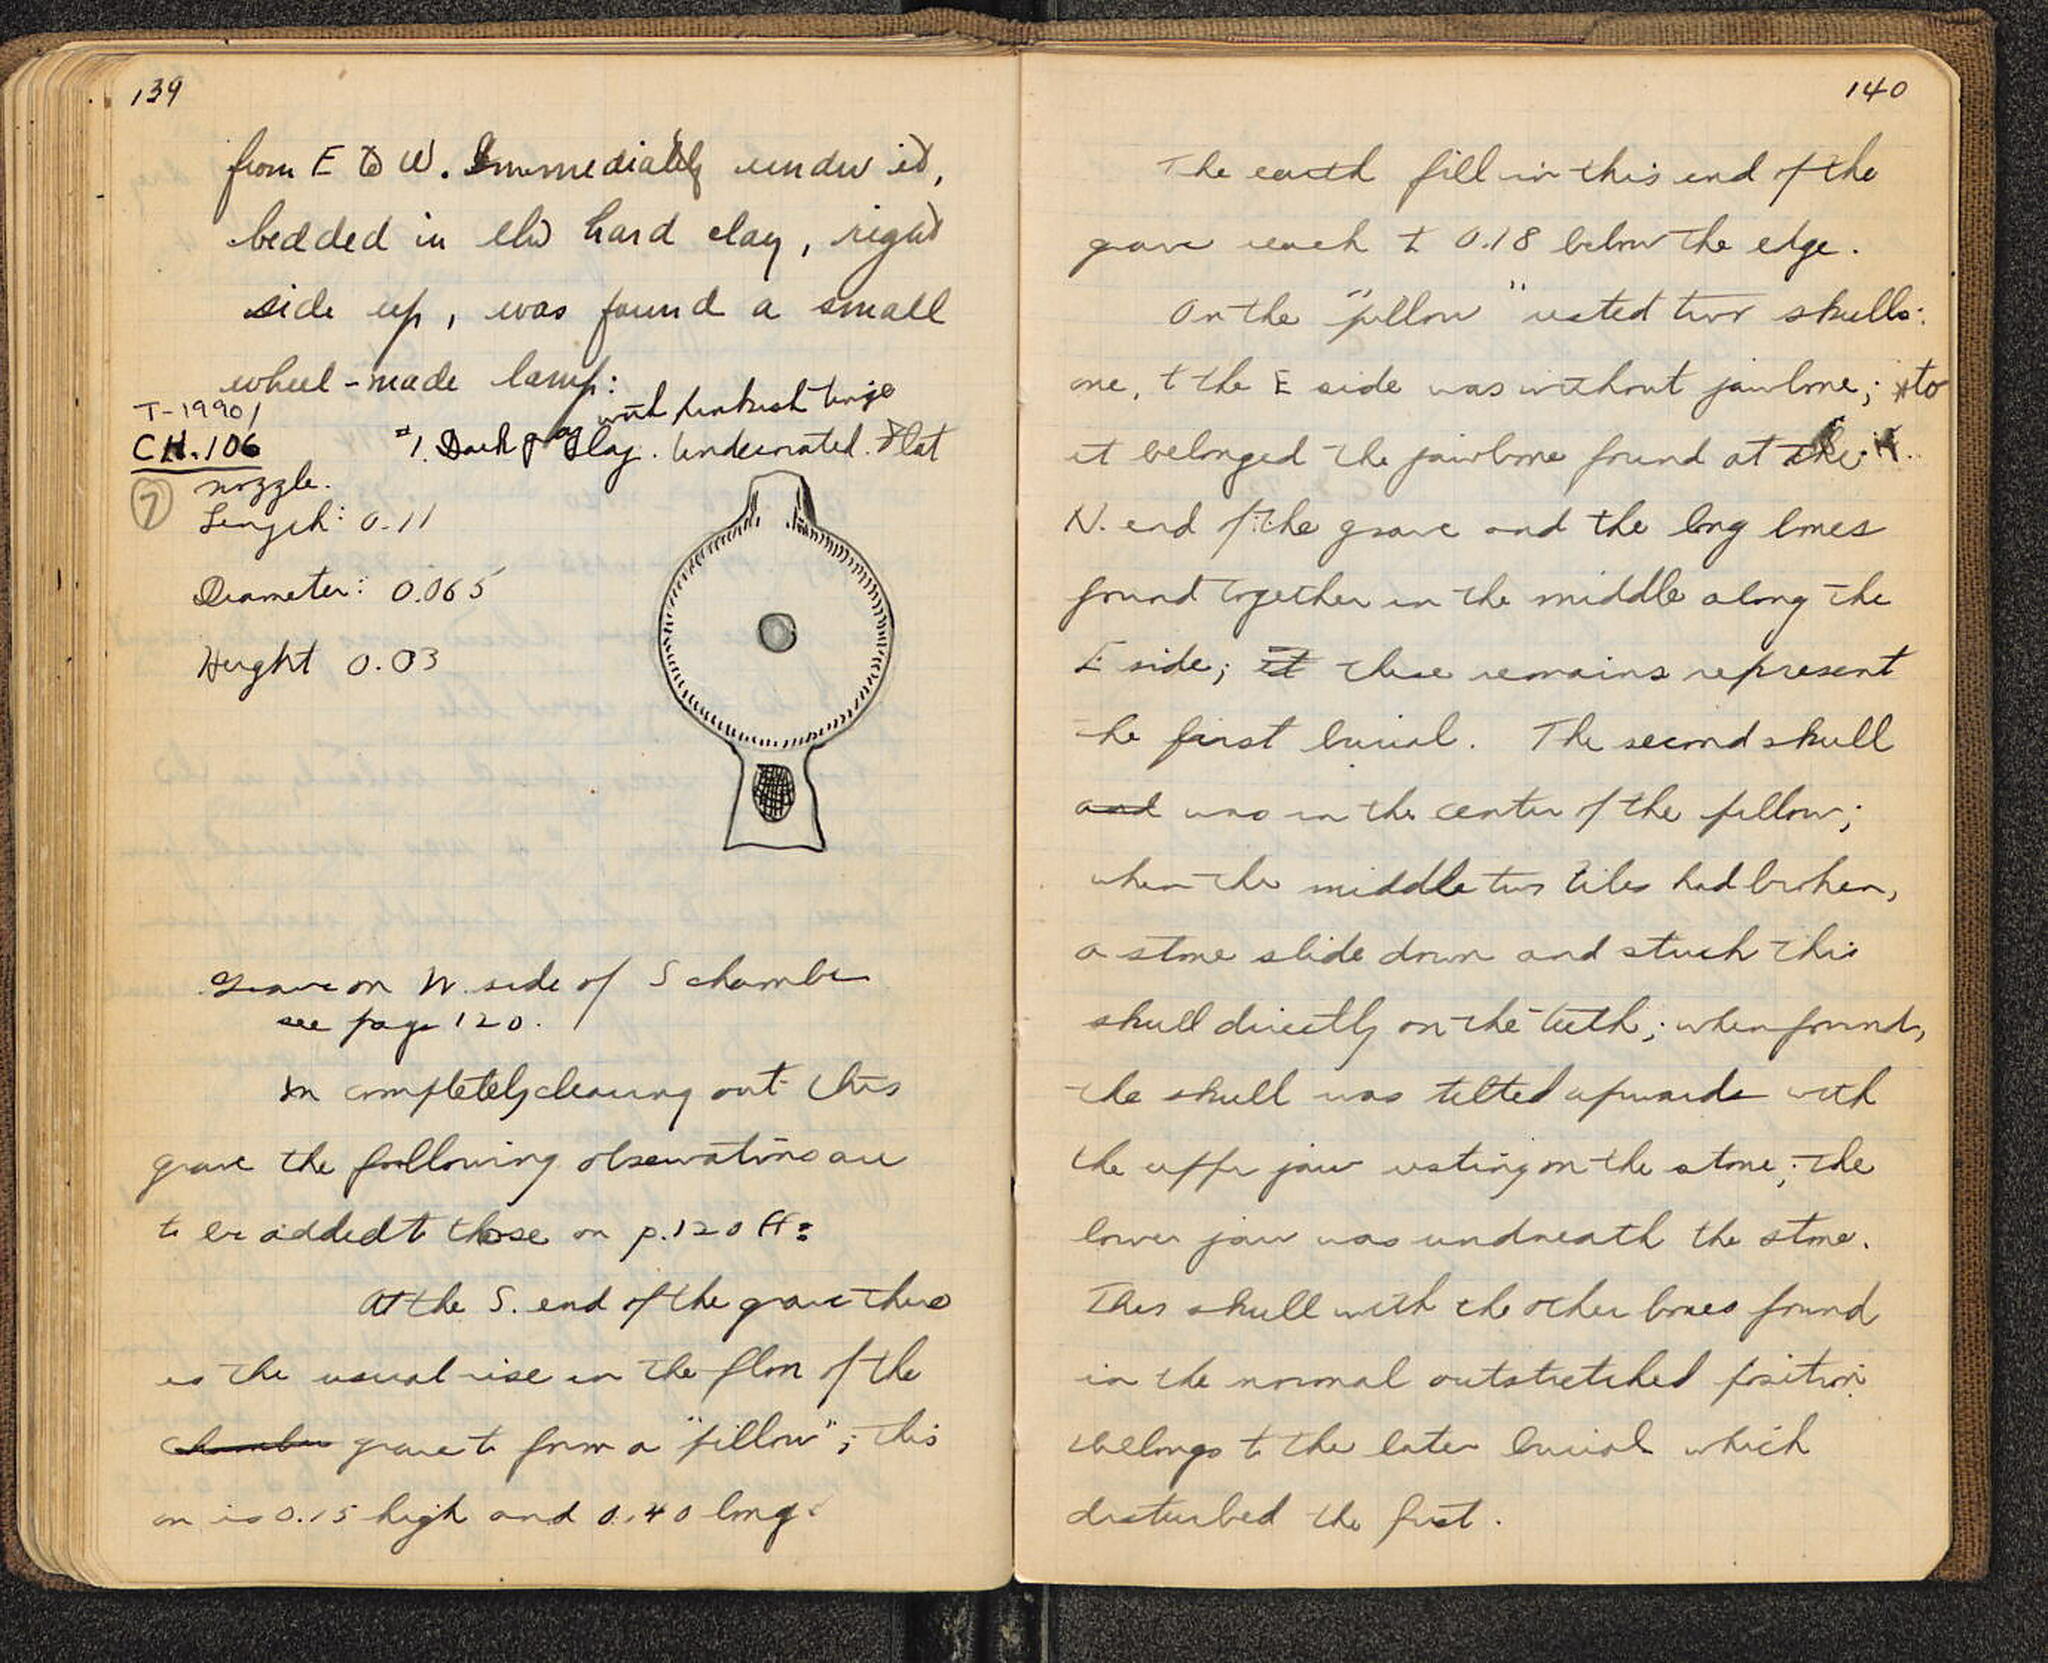 139
from E to W. Immediately under it,
bedded in the hard clay, right
side up, was found a small
wheel-made lamp:
T-1990/
CH.106
7
with pinkish tinge
#1. Dark gray clay. Undecorated. Flat
nozzle.
Length: 0.11
Diameter: 0.065
Height 0.03
Grave on W. side of S chamber
see page 120.
In completely clearing out this
grave the following observations are
to be added to those on p.120 ff:
At the S. end of the grave there
is the usual rise in the floor of the
chamber grave to form a "pillow"; this
on is 0.15 high and 0.40 long.
140
The earth fill in this end of the
grave reach to 0.18 below the edge.
On the "pillow" rested two skulls:
one, t the E side was without jawbone; to
it belonged the jawbone found at the N.
N. end of the grave and the long bones
found together in the middle along the
E side; it these remains represent
the first burial. The second skull
and was in the center of the pillow;
when the middle two tiles had broken,
a stone slide down and stuck this
skull directly on the teeth; when found,
the skull was tilted upwards with
the upper jaw resting on the stone; the
lower jaw was undneath the stone.
This skull with the other bones found
in the normal outstretched position
belongs to the later burial which
disturbed the first.